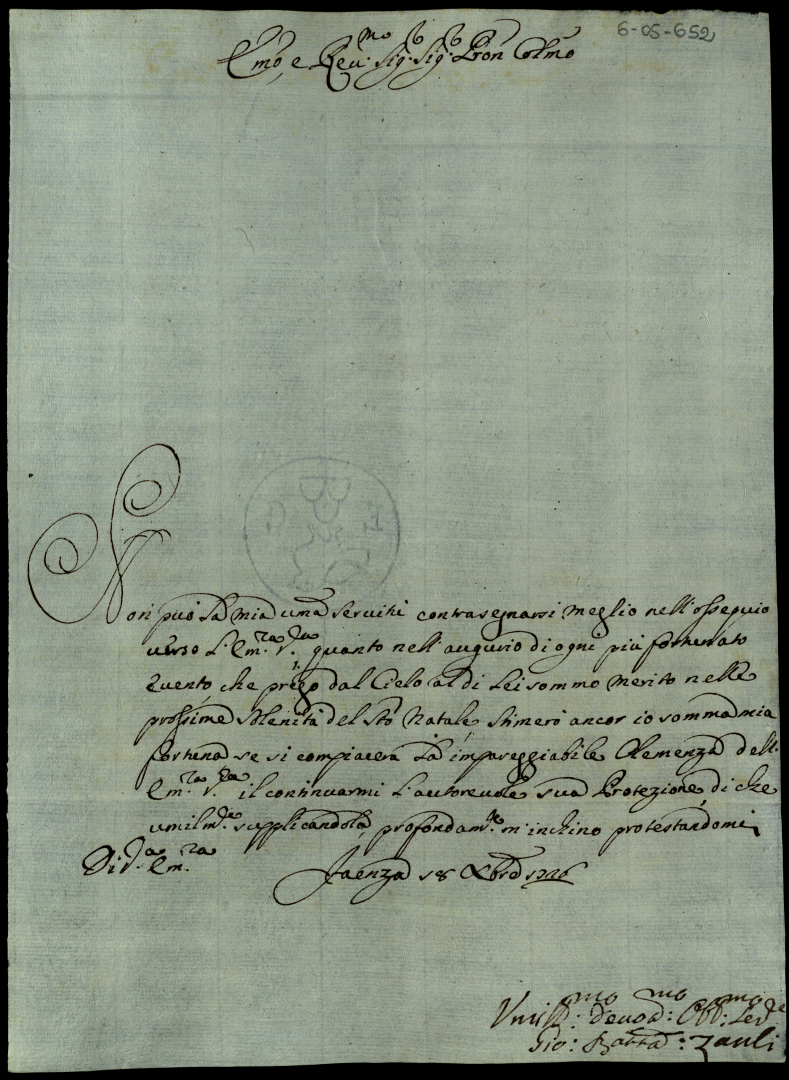 6-05-652
Emo, e Reu.mo Sig: Sig: Pron Colmo
Non può la mia uma seruitù contrasegnarsi meglio nell'ossequio
uerso l'Em.za V.ra quanto nell'augurio di ogni più fortunato
euento, che prego dal Cielo al di Lei sommo merito nelle
prossime solenità del Sto Natale, stimerò ancor io somma mia
fortuna se si compiacerà la impareggiabile Clemenza dell'
Em.za V.ra il continuarmi l'autoreuole sua Protezione, di che
umilm.te supplicandola, profondam.te m'inchino protestandomi
Di V.a Em.za
Faenza 18 Xbre 1726
Vmiss.mo Deuot.mo Obb.mo Ser.e
Gio: Batta: Zauli